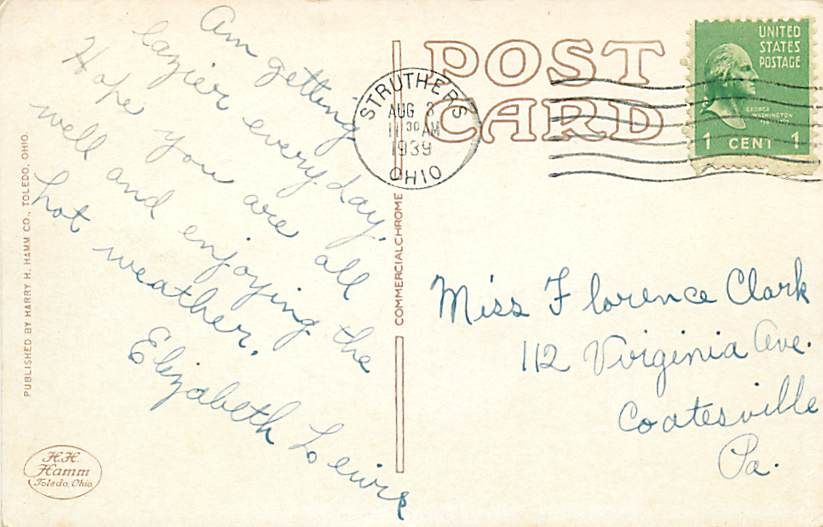 Am getting
lazier every day.
Hope you are all
well and enjoying the
hot weather.
Elizabeth Lewis
PUBLISHED BY HARRY H. HAMM CO., TOLEDO, OHIO.
H.H.
Hamm
Toledo, Ohio
COMMERCIALCHROME
POST
CARD
STRUTHERS
AUG 3
11 30 AM
1939
OHIO
UNITED
STATES
POSTAGE
GEORGE
WASHINGTON
1 CENT 1
Miss Florence Clark
112 Virginia Ave.
Coatesville
Pa.